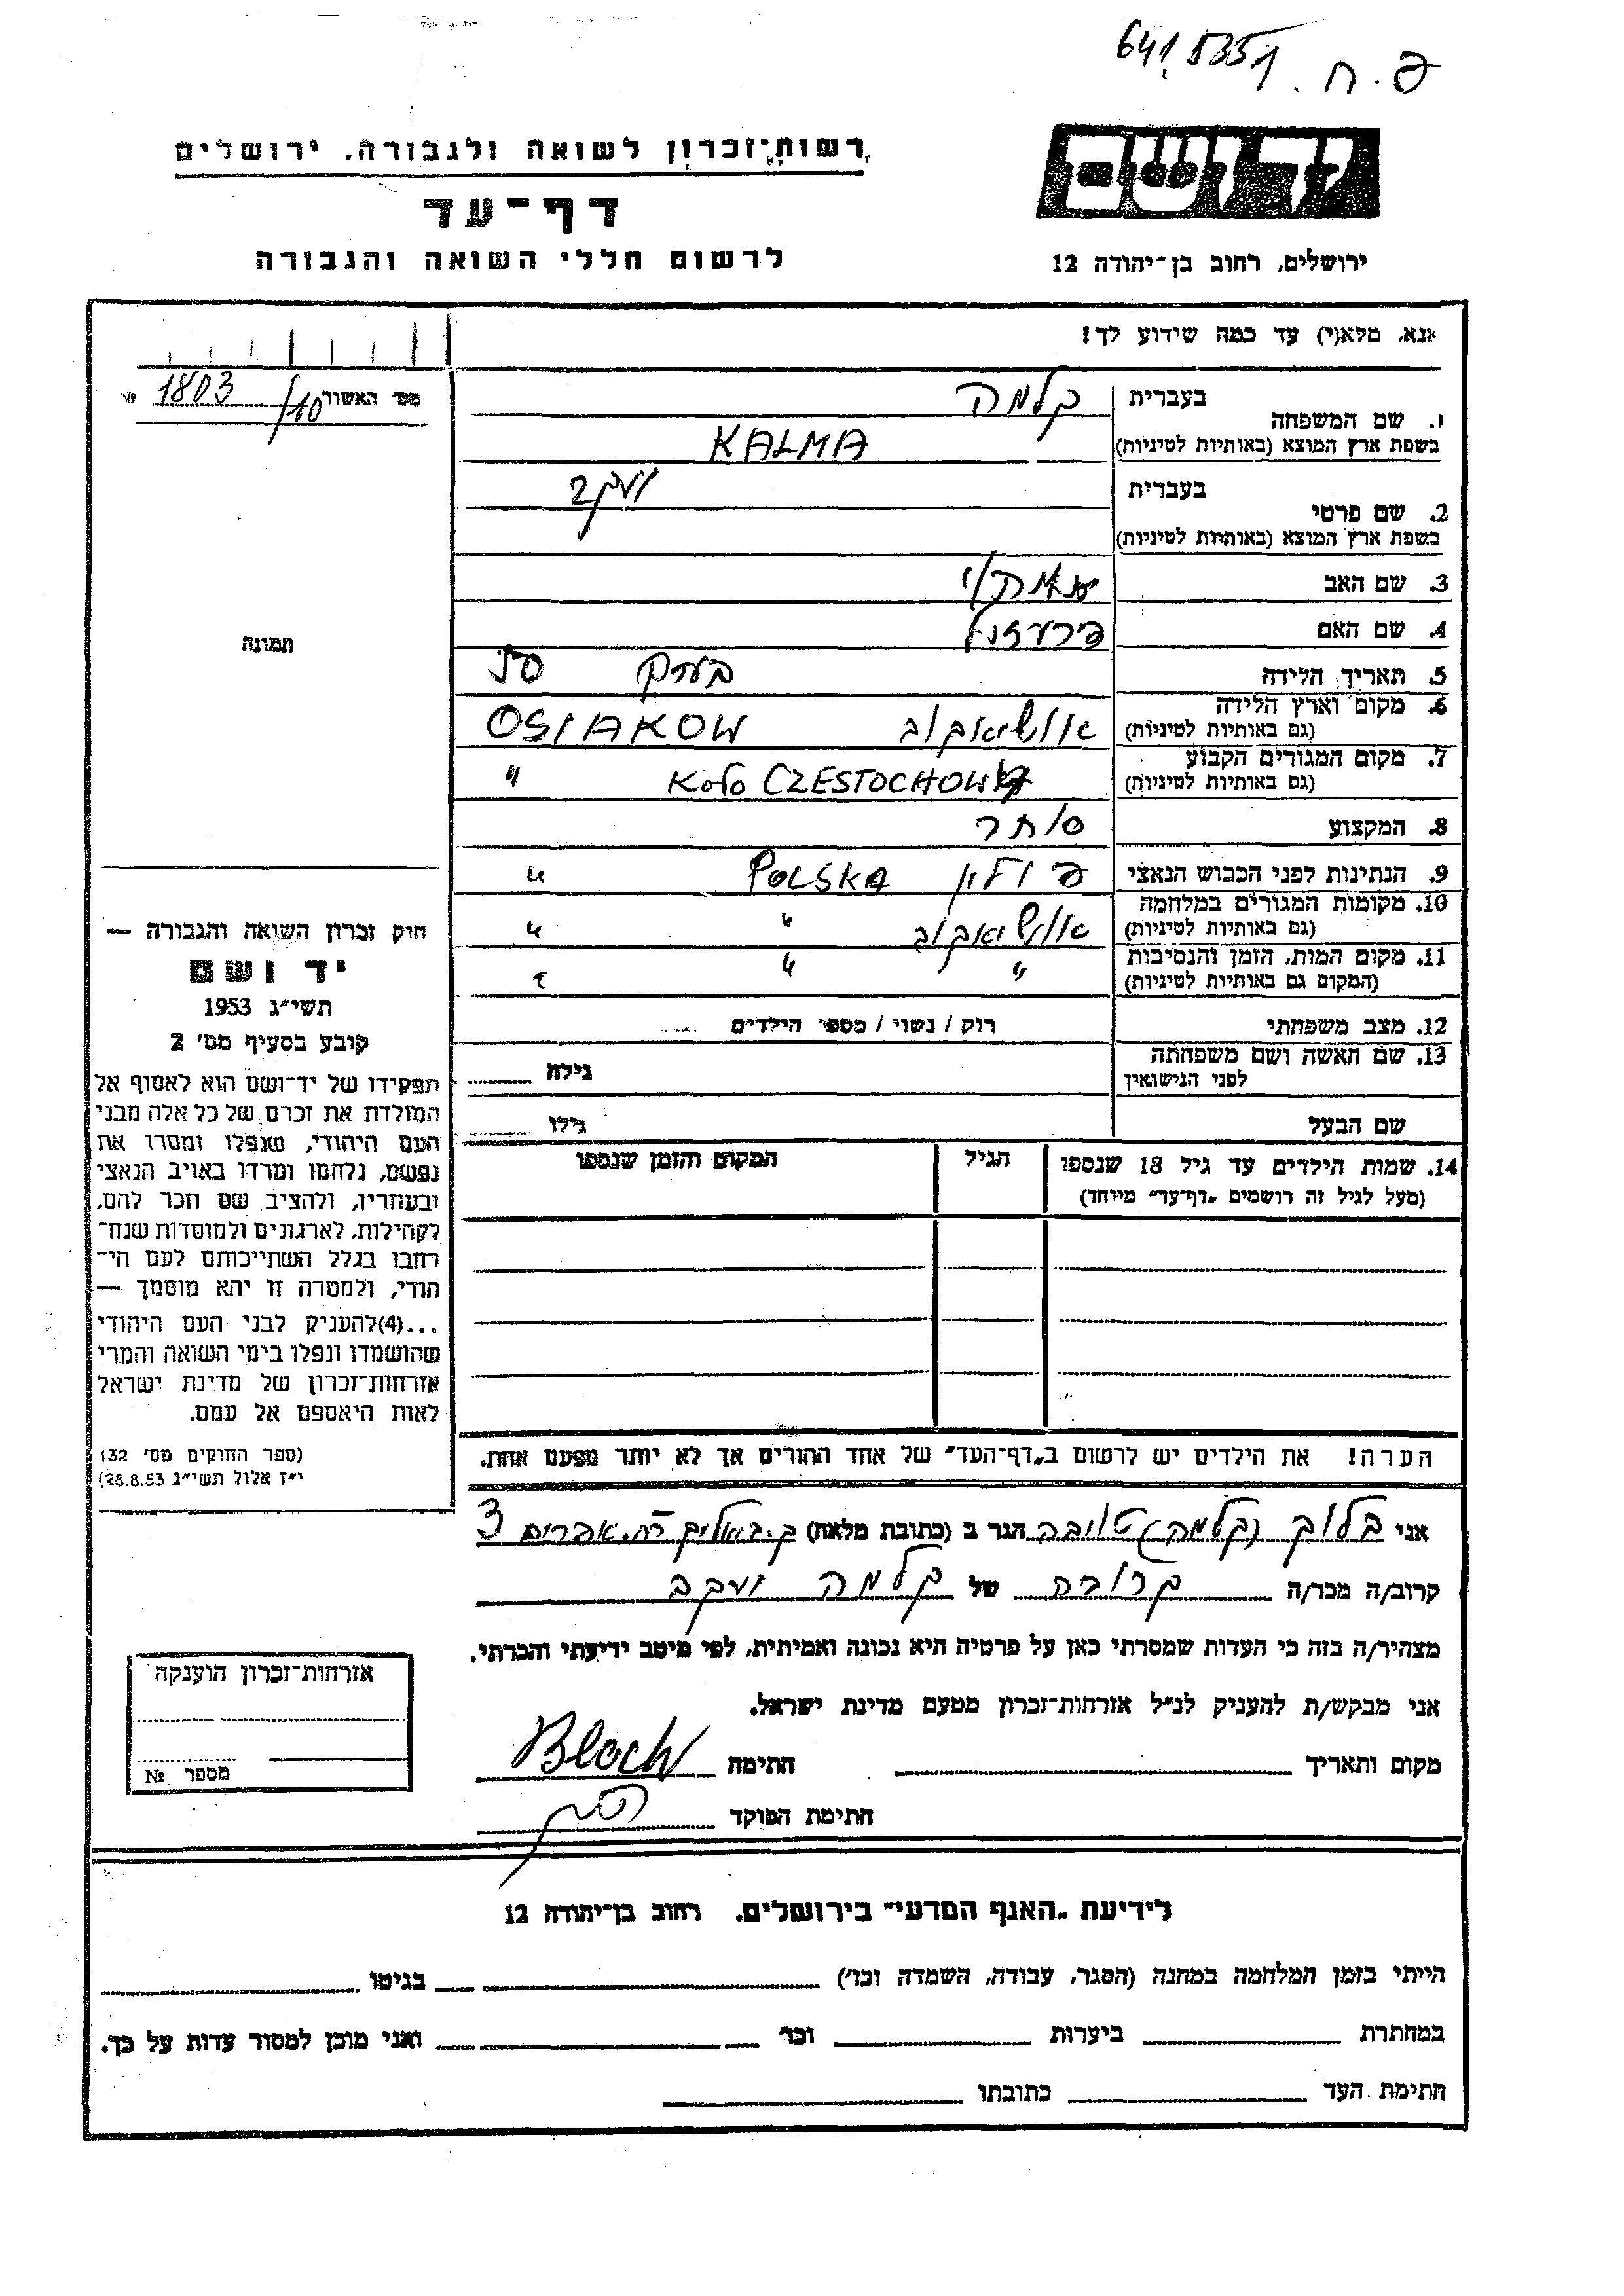 6415351 פ.ח.
רשות־זכרון לשואה ולגבורה, ירושלים
דף־עד
לרשום חללי השואה והגבורה
יד ושם
ירושלים, רחוב בן־יהודה 12
נא, מלא(י) עד כמה שידוע לך!
מס׳ האשור 1803/10 №
1. שם המשפחה
בעברית קלמה
בשפת ארץ המוצא (באותיות לטיניות) KALMA
2. שם פרטי
בעברית יעקב
בשפת ארץ המוצא (באותיות לטיניות)
3. שם האב
4. שם האם
5. תאריך הלידה בערך 50
6. מקום וארץ הלידה
(גם באותיות לטיניות) אושיאקוב OSIAKOW
7. מקום המגורים הקבוע
(גם באותיות לטיניות) KOŁO CZESTOCHOWA "
8. המקצוע סוחר
9. הנתינות לפני הכבוש הנאצי פולין POLSKA "
10. מקומות המגורים במלחמה
(גם באותיות לטיניות) אושיאקוב " "
11. מקום המות, הזמן והנסיבות
(המקום גם באותיות לטיניות) " " "
12. מצב משפחתי רוק / נשוי / מספר הילדים
13. שם האשה ושם משפחתה
לפני הנישואין גילה
שם הבעל גילו
14. שמות הילדים עד גיל 18 שנספו הגיל המקום והזמן שנספו
(מעל לגיל זה רושמים „דף־עד״ מיוחד)
תמונה
חוק זכרון השואה והגבורה —
יד ושם
תשי״ג 1953
קובע בסעיף מס׳ 2
תפקידו של יד־ושם הוא לאסוף אל
המולדת את זכרם של כל אלה מבני
העם היהודי, שנפלו ומסרו את
נפשם, נלחמו ומרדו באויב הנאצי
ובעוזריו, ולהציב שם וזכר להם,
לקהילות, לארגונים ולמוסדות שנח־
רבו בגלל השתייכותם לעם הי־
הודי, ולמטרה זו יהא מוסמך —
...(4)להעניק לבני העם היהודי
שהושמדו ונפלו בימי השואה והמרי
אזרחות־זכרון של מדינת ישראל
לאות היאספם אל עמם.
(ספר החוקים מס׳ 132
י״ז אלול תשי״ג 28.8.53)
הערה! את הילדים יש לרשום ב„דף־העד״ של אחד ההורים אך לא יותר מפעם אחת.
אני בלוך (קלמה) טובה הגר ב (כתובת מלאה) ק. ביאליק רח. אפרים 3
קרוב/ה מכר/ה קרובה של קלמה יעקב
מצהיר/ה בזה כי העדות שמסרתי כאן על פרטיה היא נכונה ואמיתית, לפי מיטב ידיעתי והכרתי.
אני מבקש/ת להעניק לנ״ל אזרחות־זכרון מטעם מדינת ישראל.
מקום ותאריך חתימה Bloch
חתימת הפוקד
אזרחות־זכרון הוענקה
מספר №
לידיעת „האגף המדעי״ בירושלים. רחוב בן־יהודה 12
הייתי בזמן המלחמה במחנה (הסגר, עבודה, השמדה וכו׳) בגיטו
במחתרת ביערות וכו׳ ואני מוכן למסור עדות על כך.
חתימת העד כתובתו